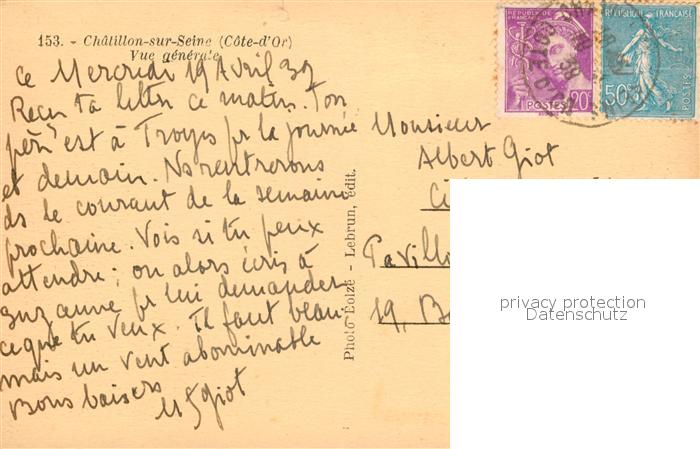 153. - Châtillon-sur-Seine (Côte-d'Or)
Vue générale
ce Mercredi 19 Avril 39
Reçu ta lettre ce matin. Ton
père est à Troyes pr la journée
et demain. Ns rentrerons
ds le courant de la semaine
prochaine. Vois si tu peux
attendre; ou alors écris à
Suzanne pr lui demander
ce que tu veux. Il fait beau
mais un vent abominable
Bons baisers
Giot
Photo Lebrun, édit.
REPUBLIQUE FRANÇAISE
20c
POSTES
REPUBLIQUE FRANÇAISE
50c
POSTES
CÔTE D'OR
Monsieur
Albert Giot
Ci
Pavillo
19, B
privacy protection
Datenschutz